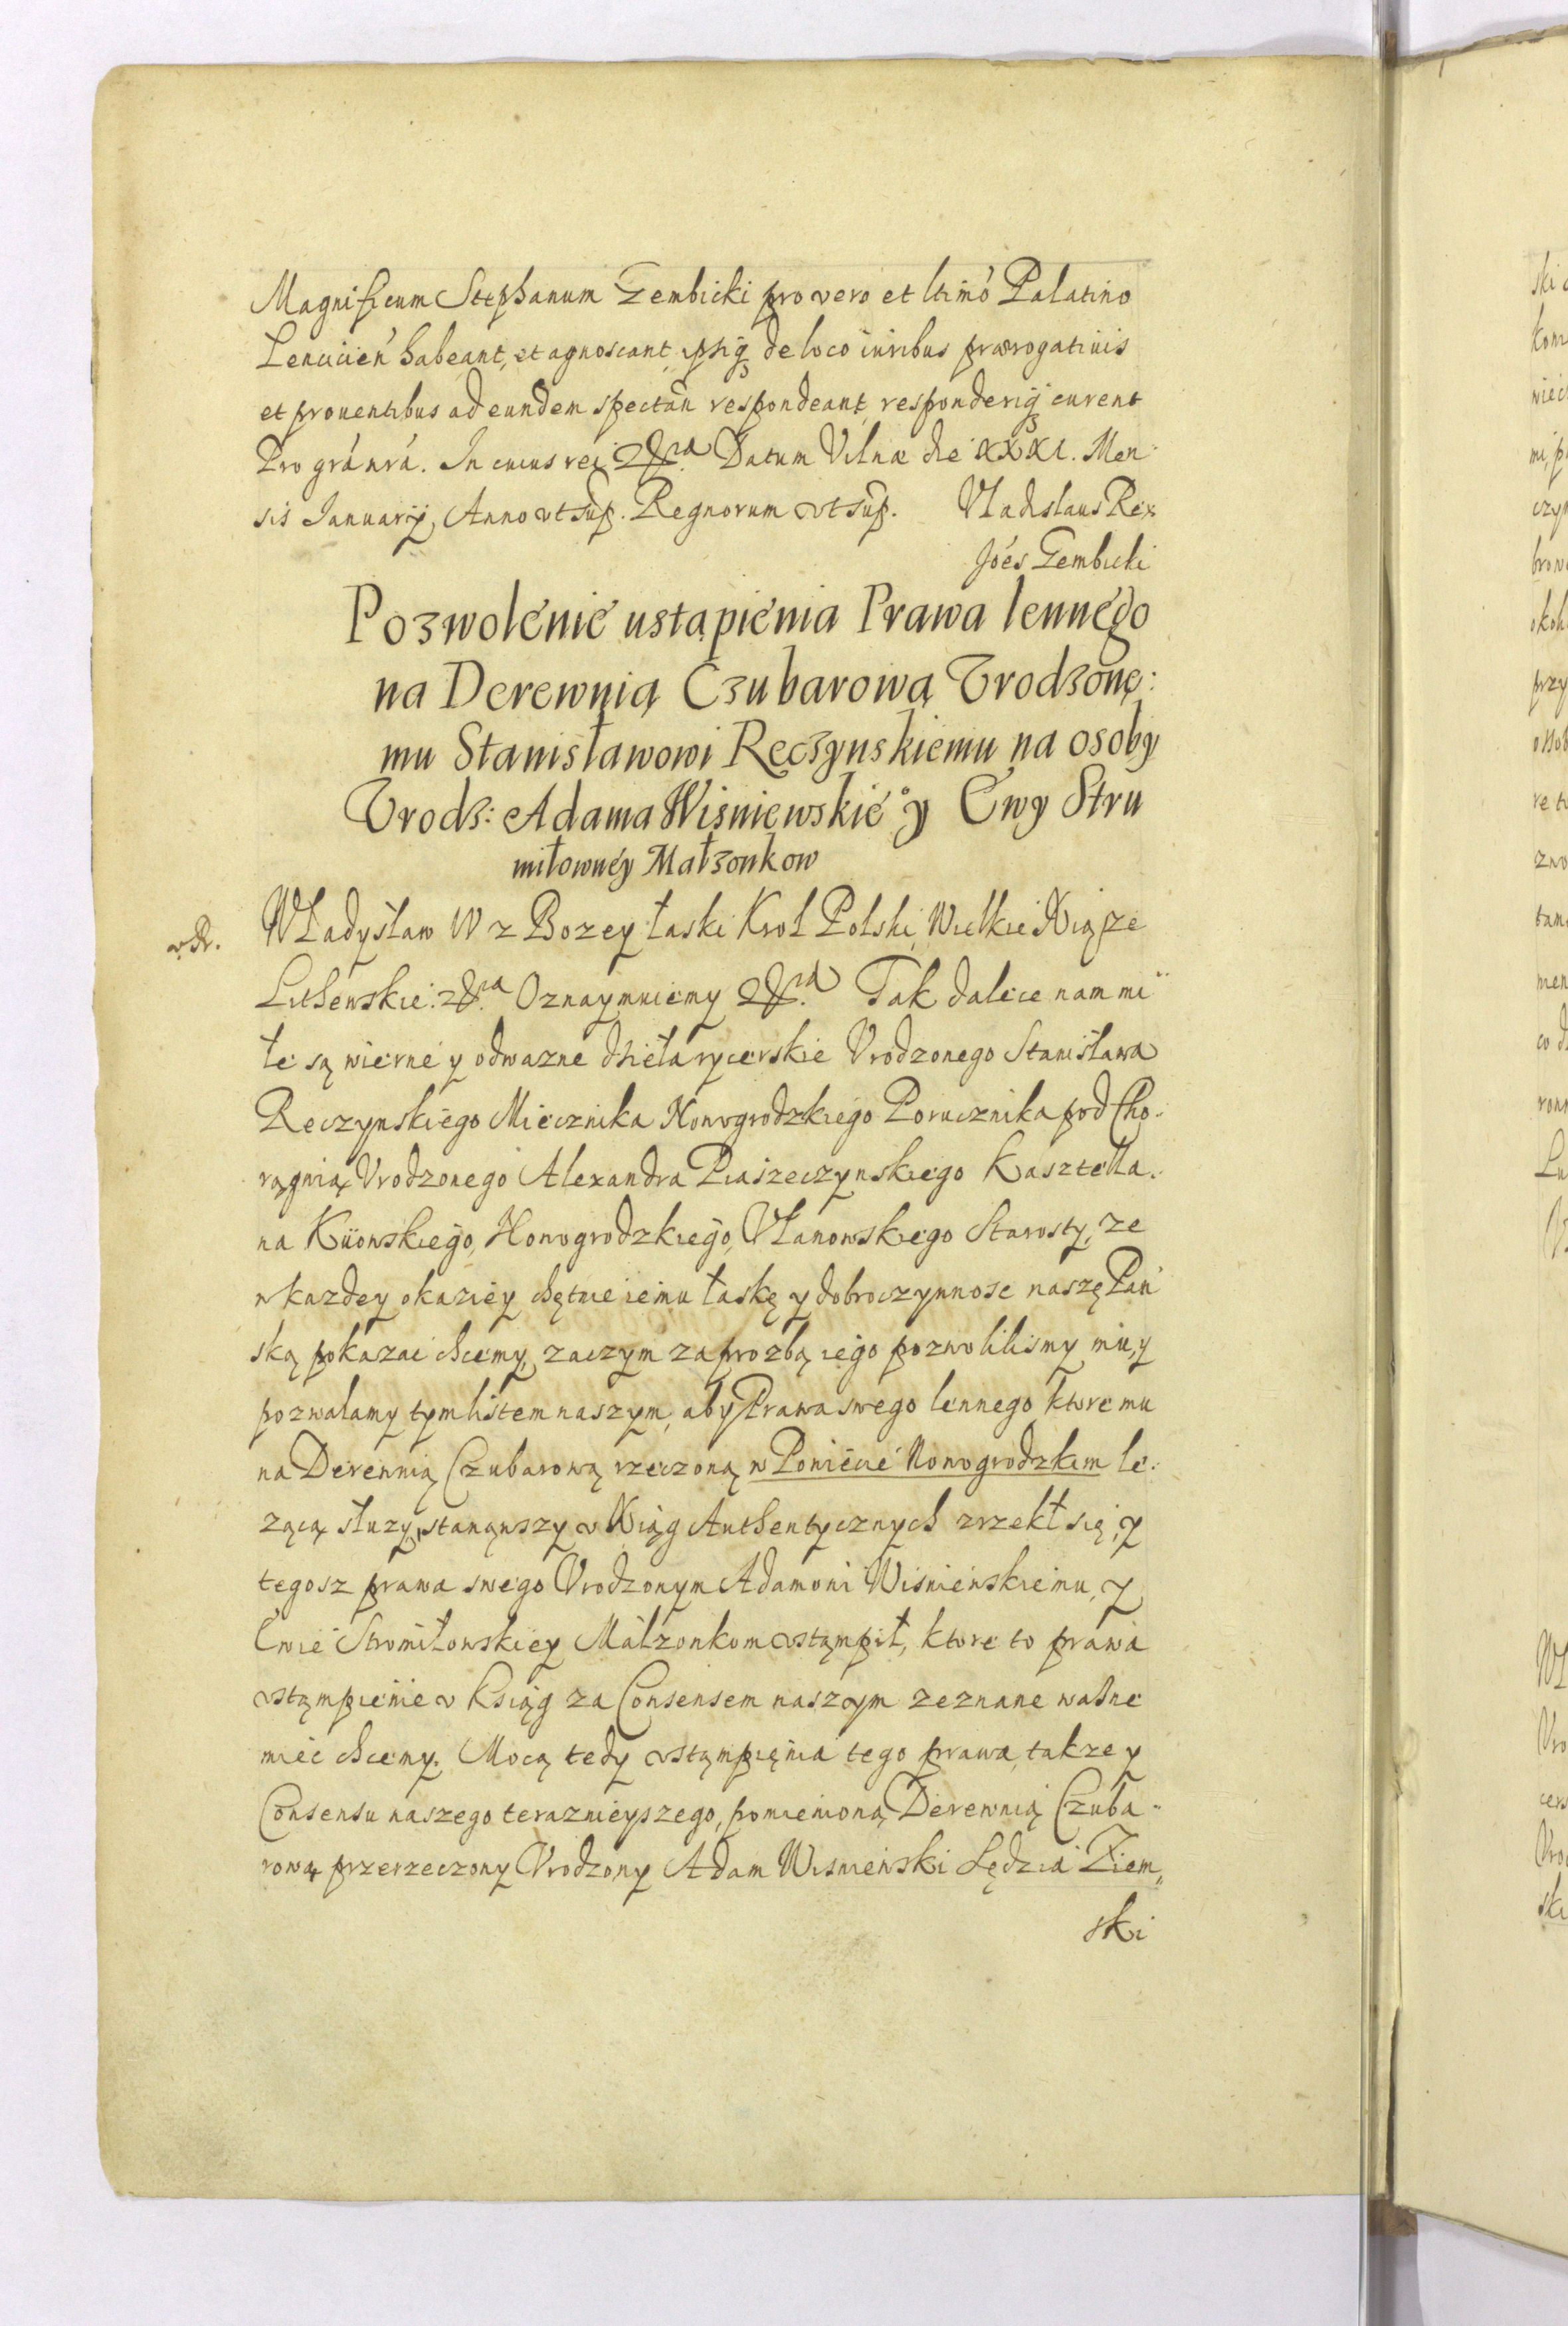 Magnificum Stephanum Gembicki pro vero et ltimó Palatino
Lencicień habeant, et agnoscant, de loco iuribus praerogatiuis
et prouentibus ad eundem spectań respondeant, responderiq curent
Pro grá nrá. In cuius rei &ca Datum Vilnae die XXXI. Men
sis Ianuarij, Anno vt sup. Regnorum vt sup. Vladislaus Rex
Joés Gembicki
Pozwolenie ustąpienia Prawa lennego
na Derewnią Czubarową Vrodzone:
mu Stanisławowi Reczynskiemu na osoby
Vrodz: Adama Wiśniewskieº y Ewy Stru
miłowney Małzonkow
Władysław IV z Bozey łaski Krol Polski, Wielkie Xiąze
Lithewskie: &ca Oznaymuiemy &ca Tak dalece nam mi
łe są wierne y odwazne dzieła rycerskie Vrodzonego Stanisława
Reczynskiego Miecznika Nowogrodzkiego Porucznika pod Cho:
rągwią Vrodzonego Alexandra Piaszeczynskiego Kasztella:
na Kiiowskiego, Nowogrodzkiego, Vlanowskiego Starosty, ze
w kazdey okaziey chętnie iemu łaskę y dobroczynnosc naszę Pań
ską pokazac chcemy, zaczym za prozbą iego pozwolilismy mu, y
pozwalamy tym listem naszym, aby Prawa swego lennego ktore mu
na Derewnią Czubarową rzeczoną w Powiecie Nowogrodzkim le:
zącą słuzy, stanąwszy v Xiąg Authentycznych zrzekł się, y
tegosz prawa swego Vrodzonym Adamowi Wisniewskiemu, y
Ewie Stromiłowskiey Małzonkom vstąmpił, ktore to prawa
vstąmpienie v Ksiąg za Consensem naszym zeznane wazne
miec chcemy. Mocą tedy vstąmpięnia tego prawa, takze y
Consensu naszego teraznieyszego, pomienioną Derewnią Czuba-
rową przerzeczony Vrodzony Adam Wisniewski Sędzia Ziem„
ski